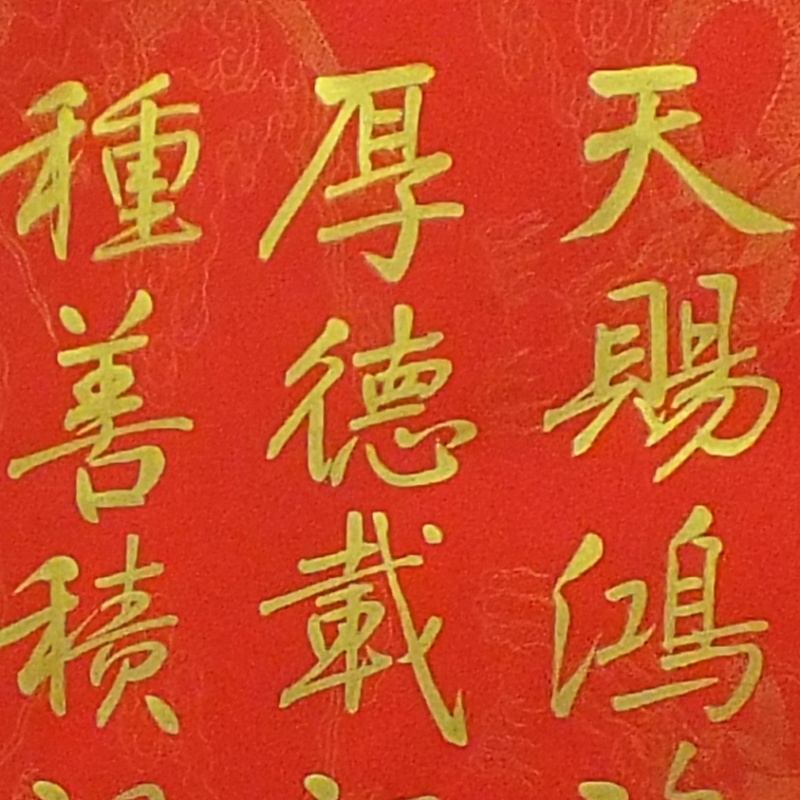 天賜鴻
厚德載
種善積